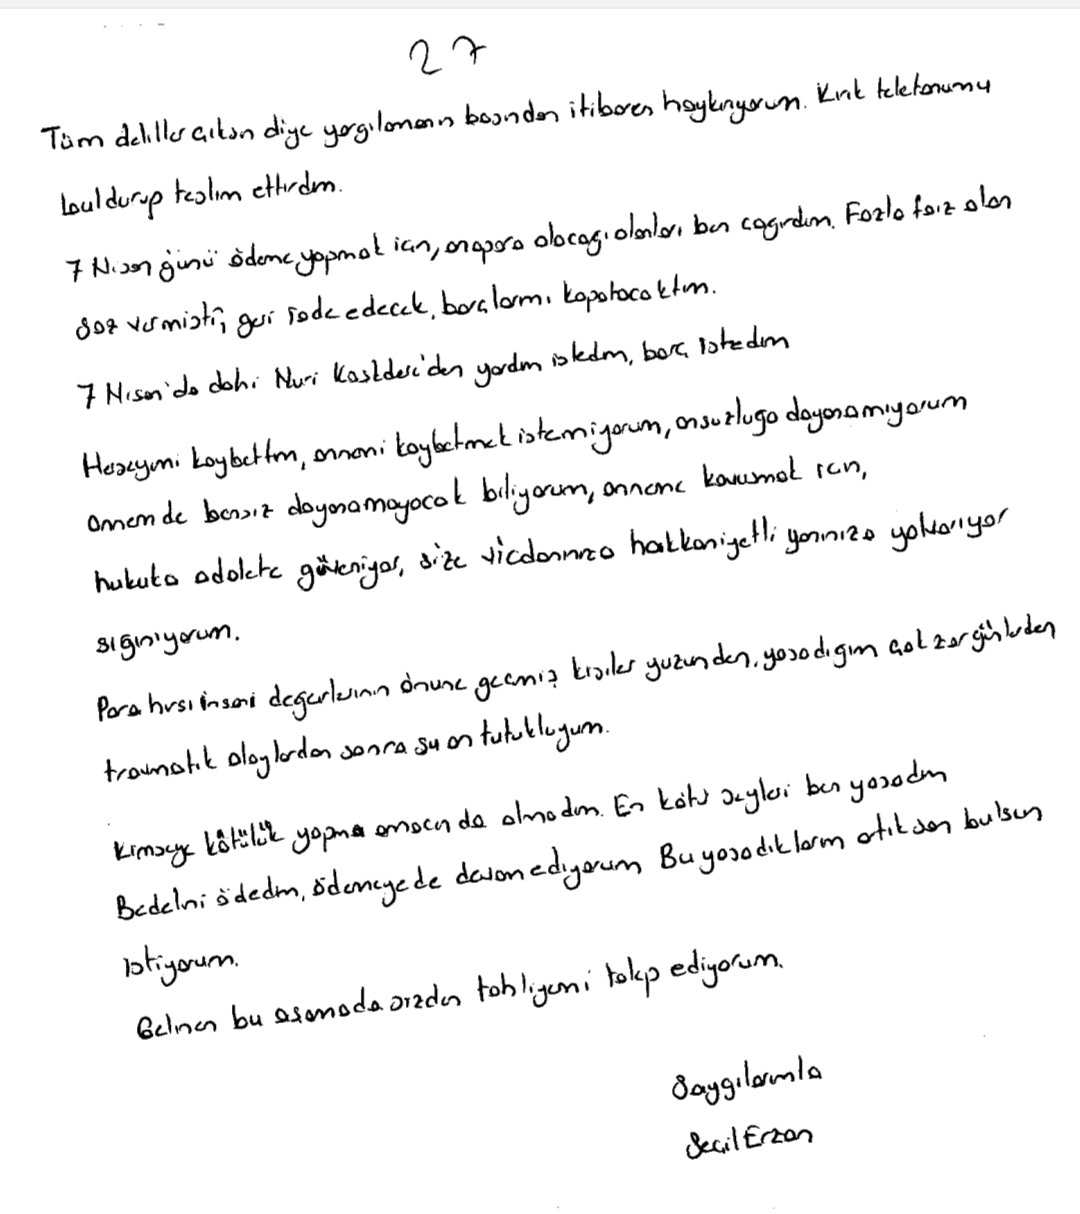 27
Tüm deliller çıksın diye yargılamanın başından itibaren haykırıyorum. Kırık telefonumu
buldurup teslim ettirdim.
7 Nisan günü ödeme yapmak için, anapara alacağı olanları ben çağırdım. Fazla faiz alan
söz vermişti, geri iade edecek, borçlarımı kapatacaktım.
7 Nisan'da dahi Nuri Kasıldere'den yardım istedim, borç istedim
Herşeyimi kaybettim, annemi kaybetmek istemiyorum, onsuzluğa dayanamıyorum
annem de bensiz dayanamayacak biliyorum, anneme kavuşmak için,
hukuka adalete güveniyor, size vicdanınıza hakkaniyetli yanınıza yalvarıyor
sığınıyorum.
Para hırsı insani değerlerinin önüne geçmiş kişiler yüzünden, yaşadığım çok zor günlerden
travmatik olaylardan sonra şu an tutukluyum.
Kimseye kötülük yapma amacında olmadım. En kötü şeyleri ben yaşadım
Bedelini ödedim, ödemeye de devam ediyorum Bu yaşadıklarım artık son bulsun
istiyorum.
Gelinen bu aşamada sizden tahliyemi talep ediyorum.
Saygılarımla
Seçil Erzan